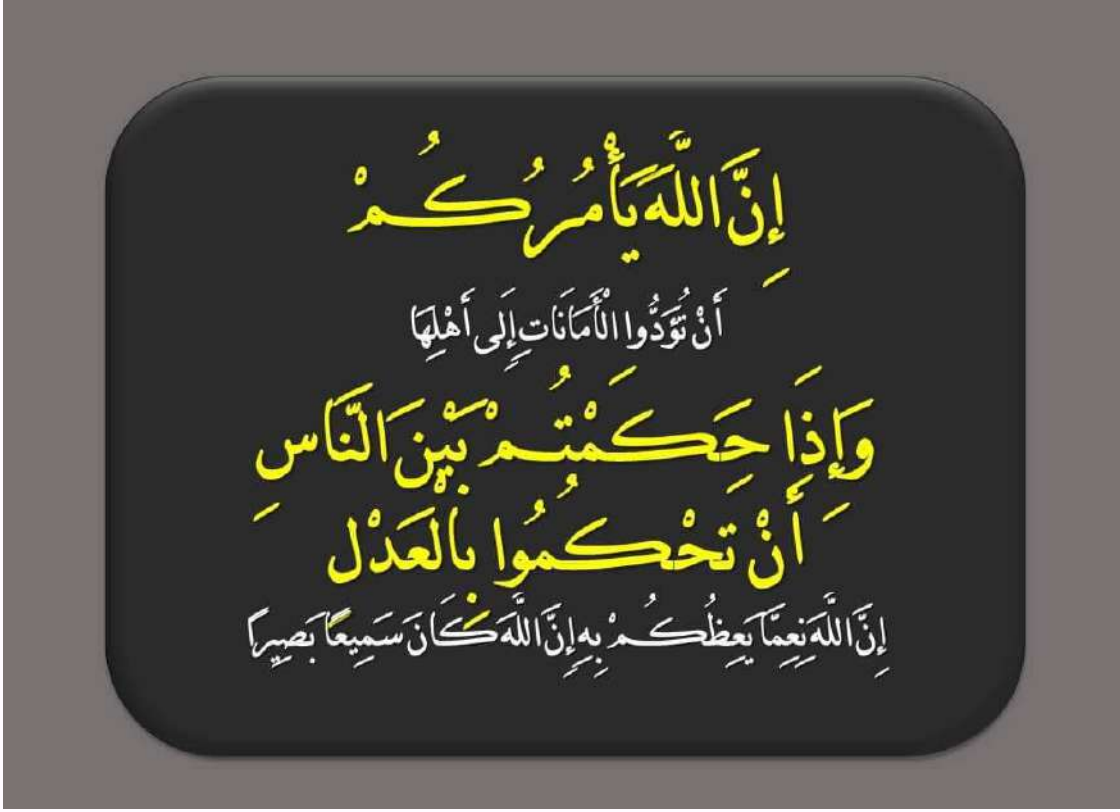 إِنَّ اللَّهَ يَأْمُرُكُمْ
أَنْ تُؤَدُّوا الْأَمَانَاتِ إِلَى أَهْلِهَا
وَإِذَا حَكَمْتُمْ بَيْنَ النَّاسِ
أَنْ تَحْكُمُوا بِالْعَدْلِ
إِنَّ اللَّهَ نِعِمَّا يَعِظُكُمْ بِهِ إِنَّ اللَّهَ كَانَ سَمِيعًا بَصِيرًا